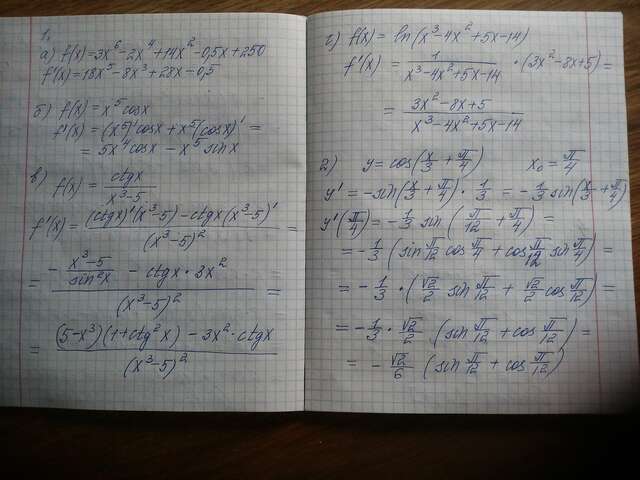 1.
а) f(x)=3x⁶-2x⁴+14x²-0,5x+250
f'(x)=18x⁵-8x³+28x-0,5
б) f(x)=x⁵cosx
f'(x)=(x⁵)'cosx+x⁵(cosx)'=
=5x⁴cosx-x⁵sinx
в) f(x)=ctgx/(x³-5)
f'(x)=((ctgx)'(x³-5)-ctgx(x³-5)')/(x³-5)²=
=(-(x³-5)/sin²x - ctgx·3x²)/(x³-5)²=
=((5-x³)(1+ctg²x)-3x²·ctgx)/(x³-5)²
г) f(x)=ln(x³-4x²+5x-14)
f'(x)=1/(x³-4x²+5x-14)·(3x²-8x+5)=
=(3x²-8x+5)/(x³-4x²+5x-14)
2) y=cos(x/3+π/4) x₀=π/4
y'=-sin(x/3+π/4)·1/3=-1/3sin(x/3+π/4)
y'(π/4)=-1/3 sin(π/12+π/4)=
=-1/3(sinπ/12cosπ/4+cosπ/12sinπ/4)=
=-1/3·(√2/2 sinπ/12+√2/2cosπ/12)=
=-1/3·√2/2(sinπ/12+cosπ/12)=
=-√2/6(sinπ/12+cosπ/12)